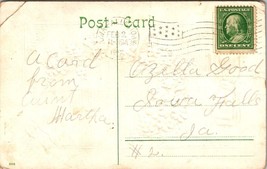 Post Card
a card
from
Aunt
Martha.
Ozella Good
Iowa Falls
Ia.
ONE CENT